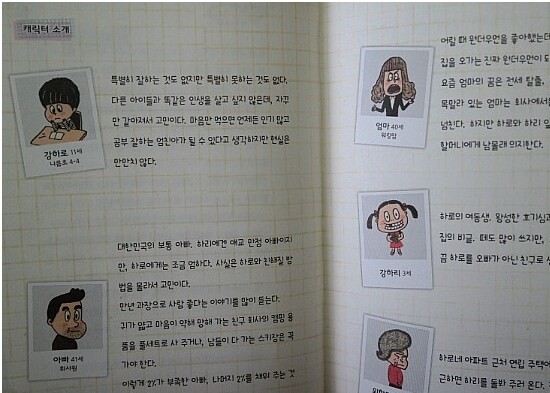 캐릭터 소개
특별히 잘하는 것도 없지만 특별히 못하는 것도 없다.
다른 아이들과 똑같은 인생을 살고 싶지 않은데, 자꾸
만 같아져서 고민이다. 마음만 먹으면 언제든 인기 많고
공부 잘하는 엄친아가 될 수 있다고 생각하지만 현실은
만만치 않다.
강하로 11세
나름초 4-4
대한민국의 보통 아빠. 하리에겐 애교 만점 아빠이지
만, 하로에게는 조금 엄하다. 사실은 하로와 친해질 방
법을 몰라서 고민이다.
만년 과장으로 사람 좋다는 이야기를 많이 듣는다.
귀가 얇고 마음이 약해 망해 가는 친구 회사의 캠핑 용
품을 풀세트로 사 주거나, 남들이 다 가는 스키장은 꼭
가야 한다.
이렇게 2%가 부족한 아빠, 나머지 2%를 채워 주는 것
아빠 41세
회사원
어릴 때 원더우먼을 좋아했는데
집을 오가는 진짜 원더우먼이 되
요즘 엄마의 꿈은 전세 탈출,
목말라 있는 엄마는 회사에서
넘친다. 하지만 하로와 하리 일
할머니에게 남몰래 의지한다.
엄마 40세
워킹맘
하로의 여동생. 왕성한 호기심과
집의 비글. 떼도 많이 쓰지만,
끔 하로를 오빠가 아닌 친구로
강하리 3세
하로네 아파트 근처 연립 주택에
근하면 하리를 돌봐 주러 온다.